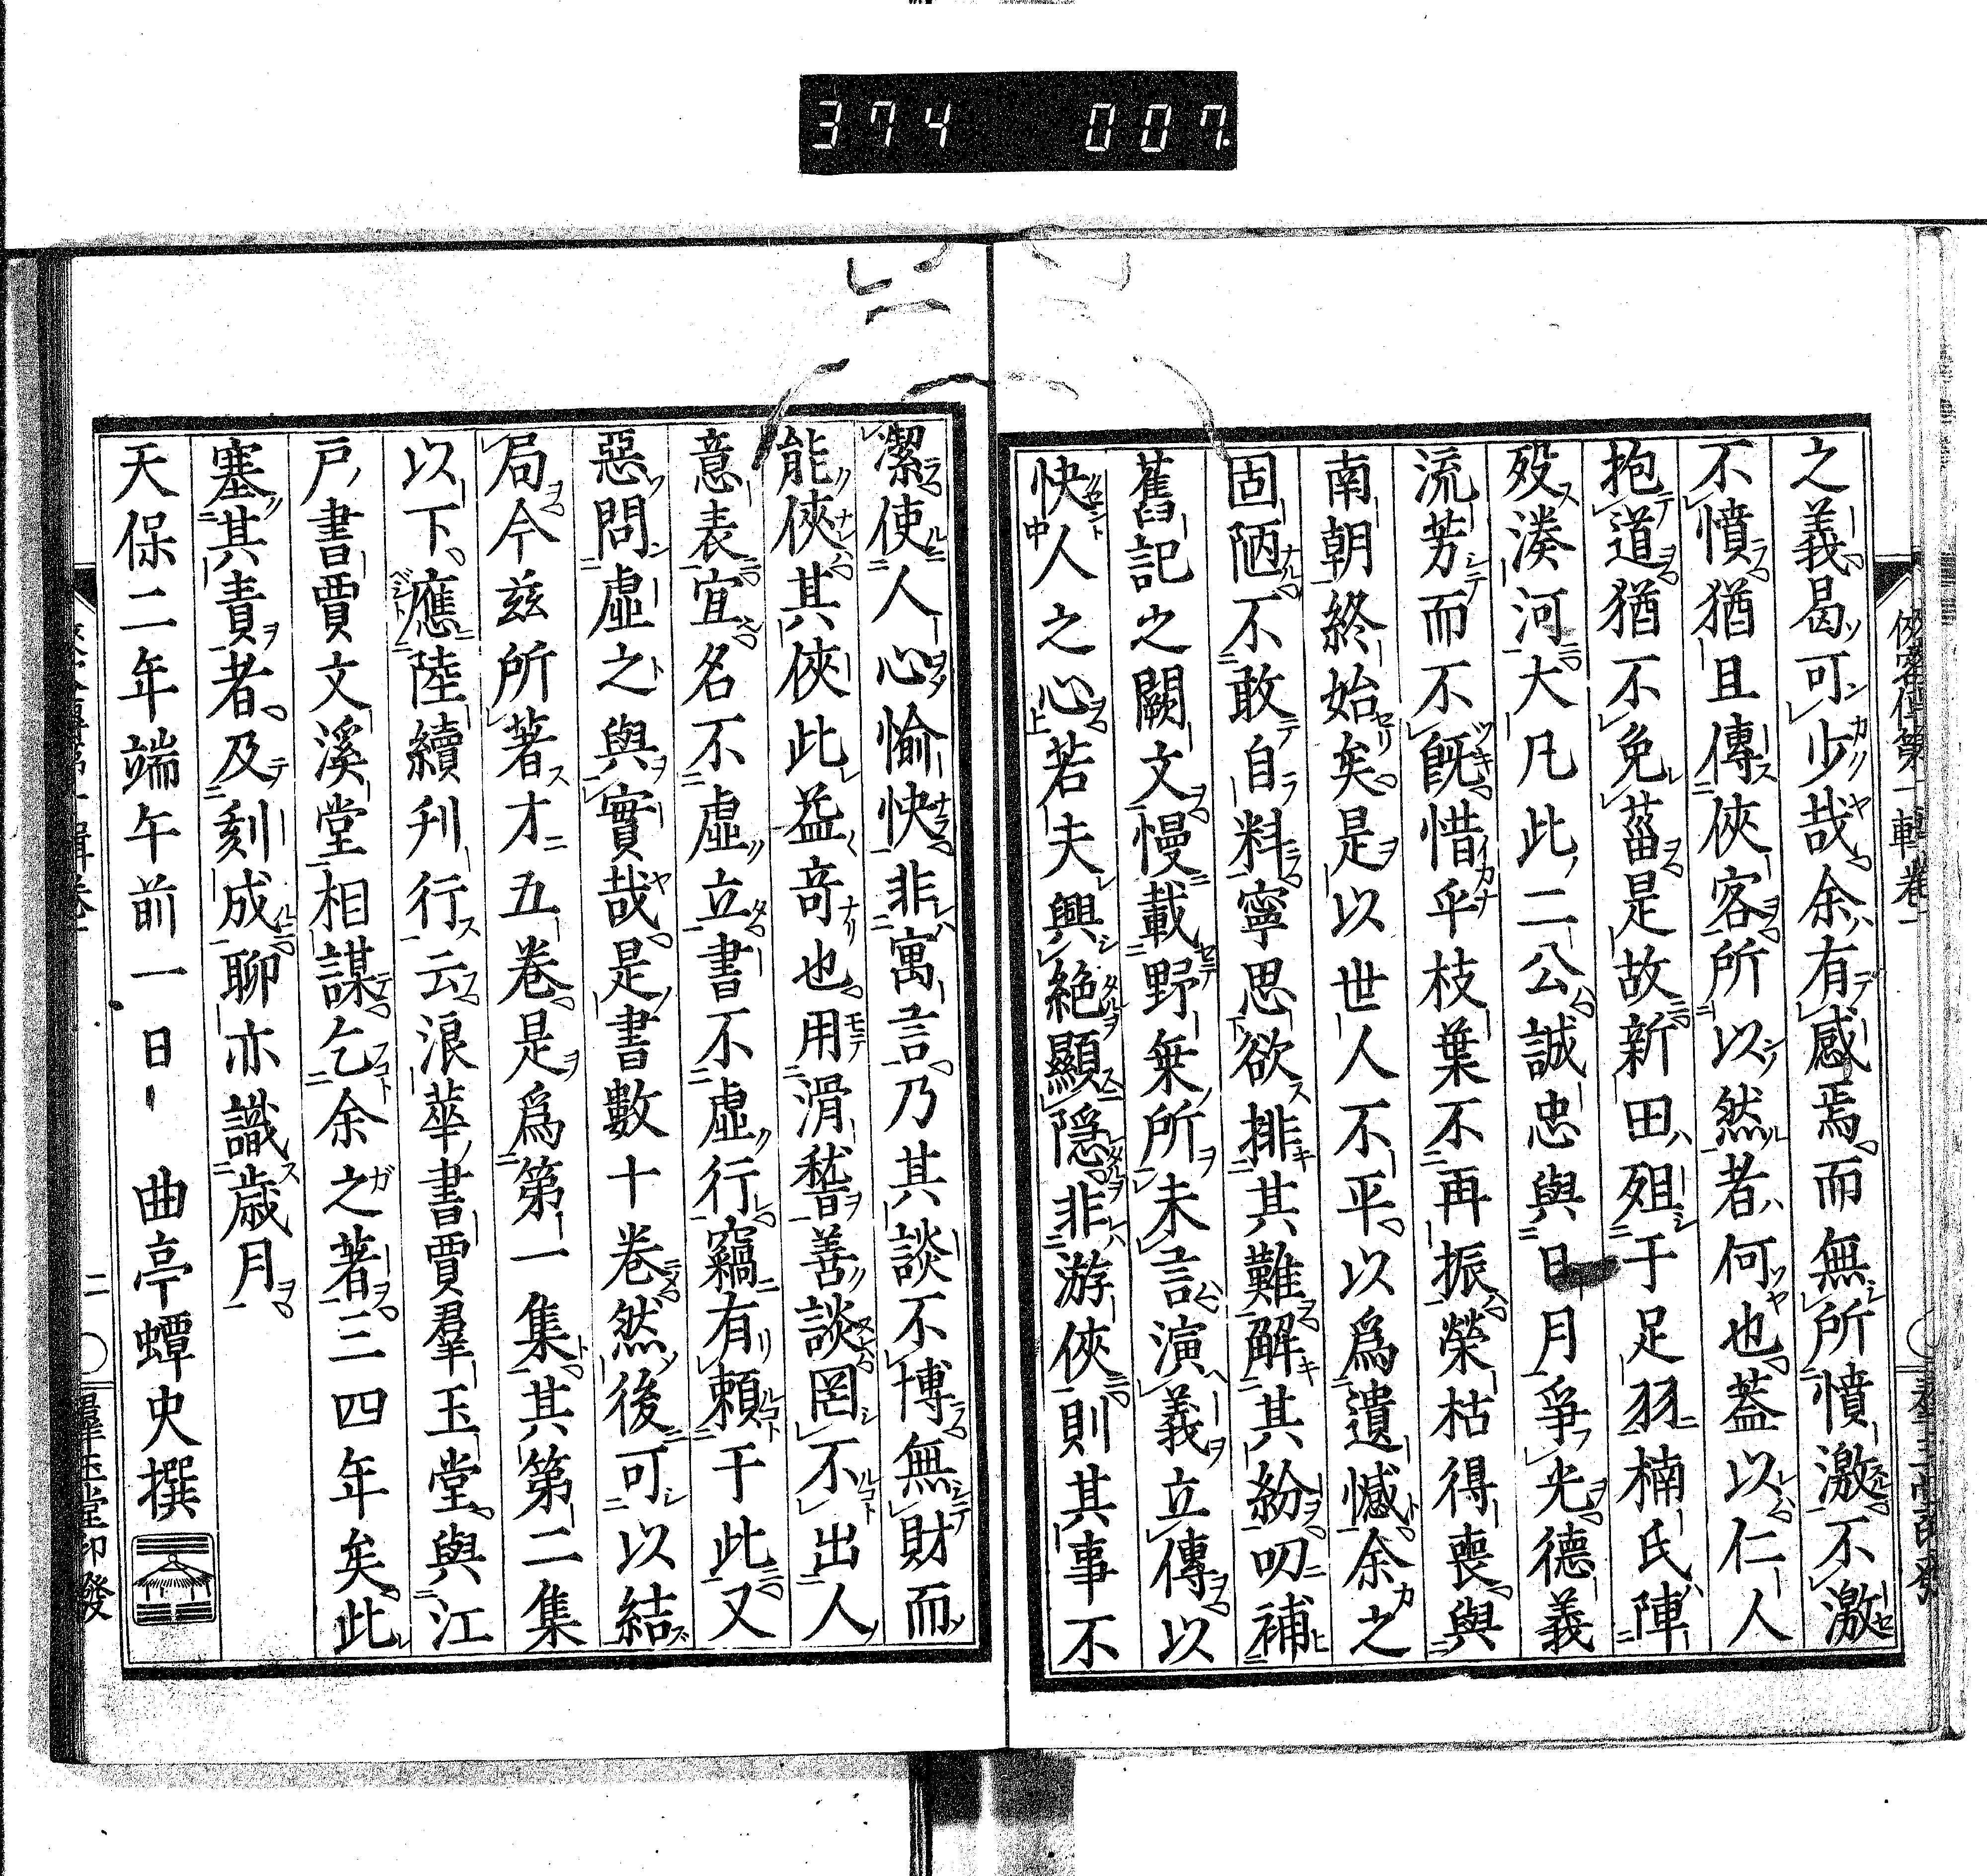 374 007.
之義曷可少哉余有感焉而無所憤激不激
不憤猶且傳俠客所以然者何也蓋以仁人
抱道猶不免菑是故新田殂于足羽楠氏陣
歿湊河大凡此二公誠忠與日月爭光德義
流芳而不旣惜乎枝葉不再振榮枯得喪與
南朝終始矣是以世人不平以爲遺憾余之
固陋不敢自料寧思欲排其難解其紛叨補
舊記之闕文慢載野乗所未言演義立傳以
快人之心若夫興絶顯隱非游俠則其事不
潔使人心愉快非寓言乃其談不博無財而
能俠其俠此益奇也用滑稽善談罔不出人
意表宜名不虛立書不虛行竊有頼于此又
惡問虛之與實哉是書數十卷然後可以結
局今茲所著才五卷是爲第一集其第二集
以下應陸續刋行云浪華書賈羣玉堂與江
戸書賈文溪堂相謀乞余之著三四年矣此
塞其責者及刻成聊亦識歲月
天保二年端午前一日 曲亭蟫史撰
二 羣玉堂印發